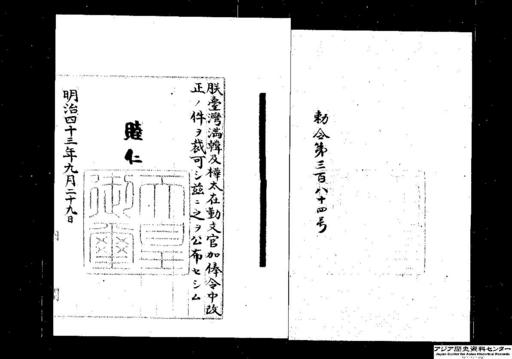 勅令第三百八十四号
朕臺灣満韓及樺太在勤文官加俸令中改
正ノ件ヲ裁可シ茲ニ之ヲ公布セシム
睦仁
天皇
御璽
明治四十三年九月二十九日
アジア歴史資料センター
Japan Center for Asian Historical Records